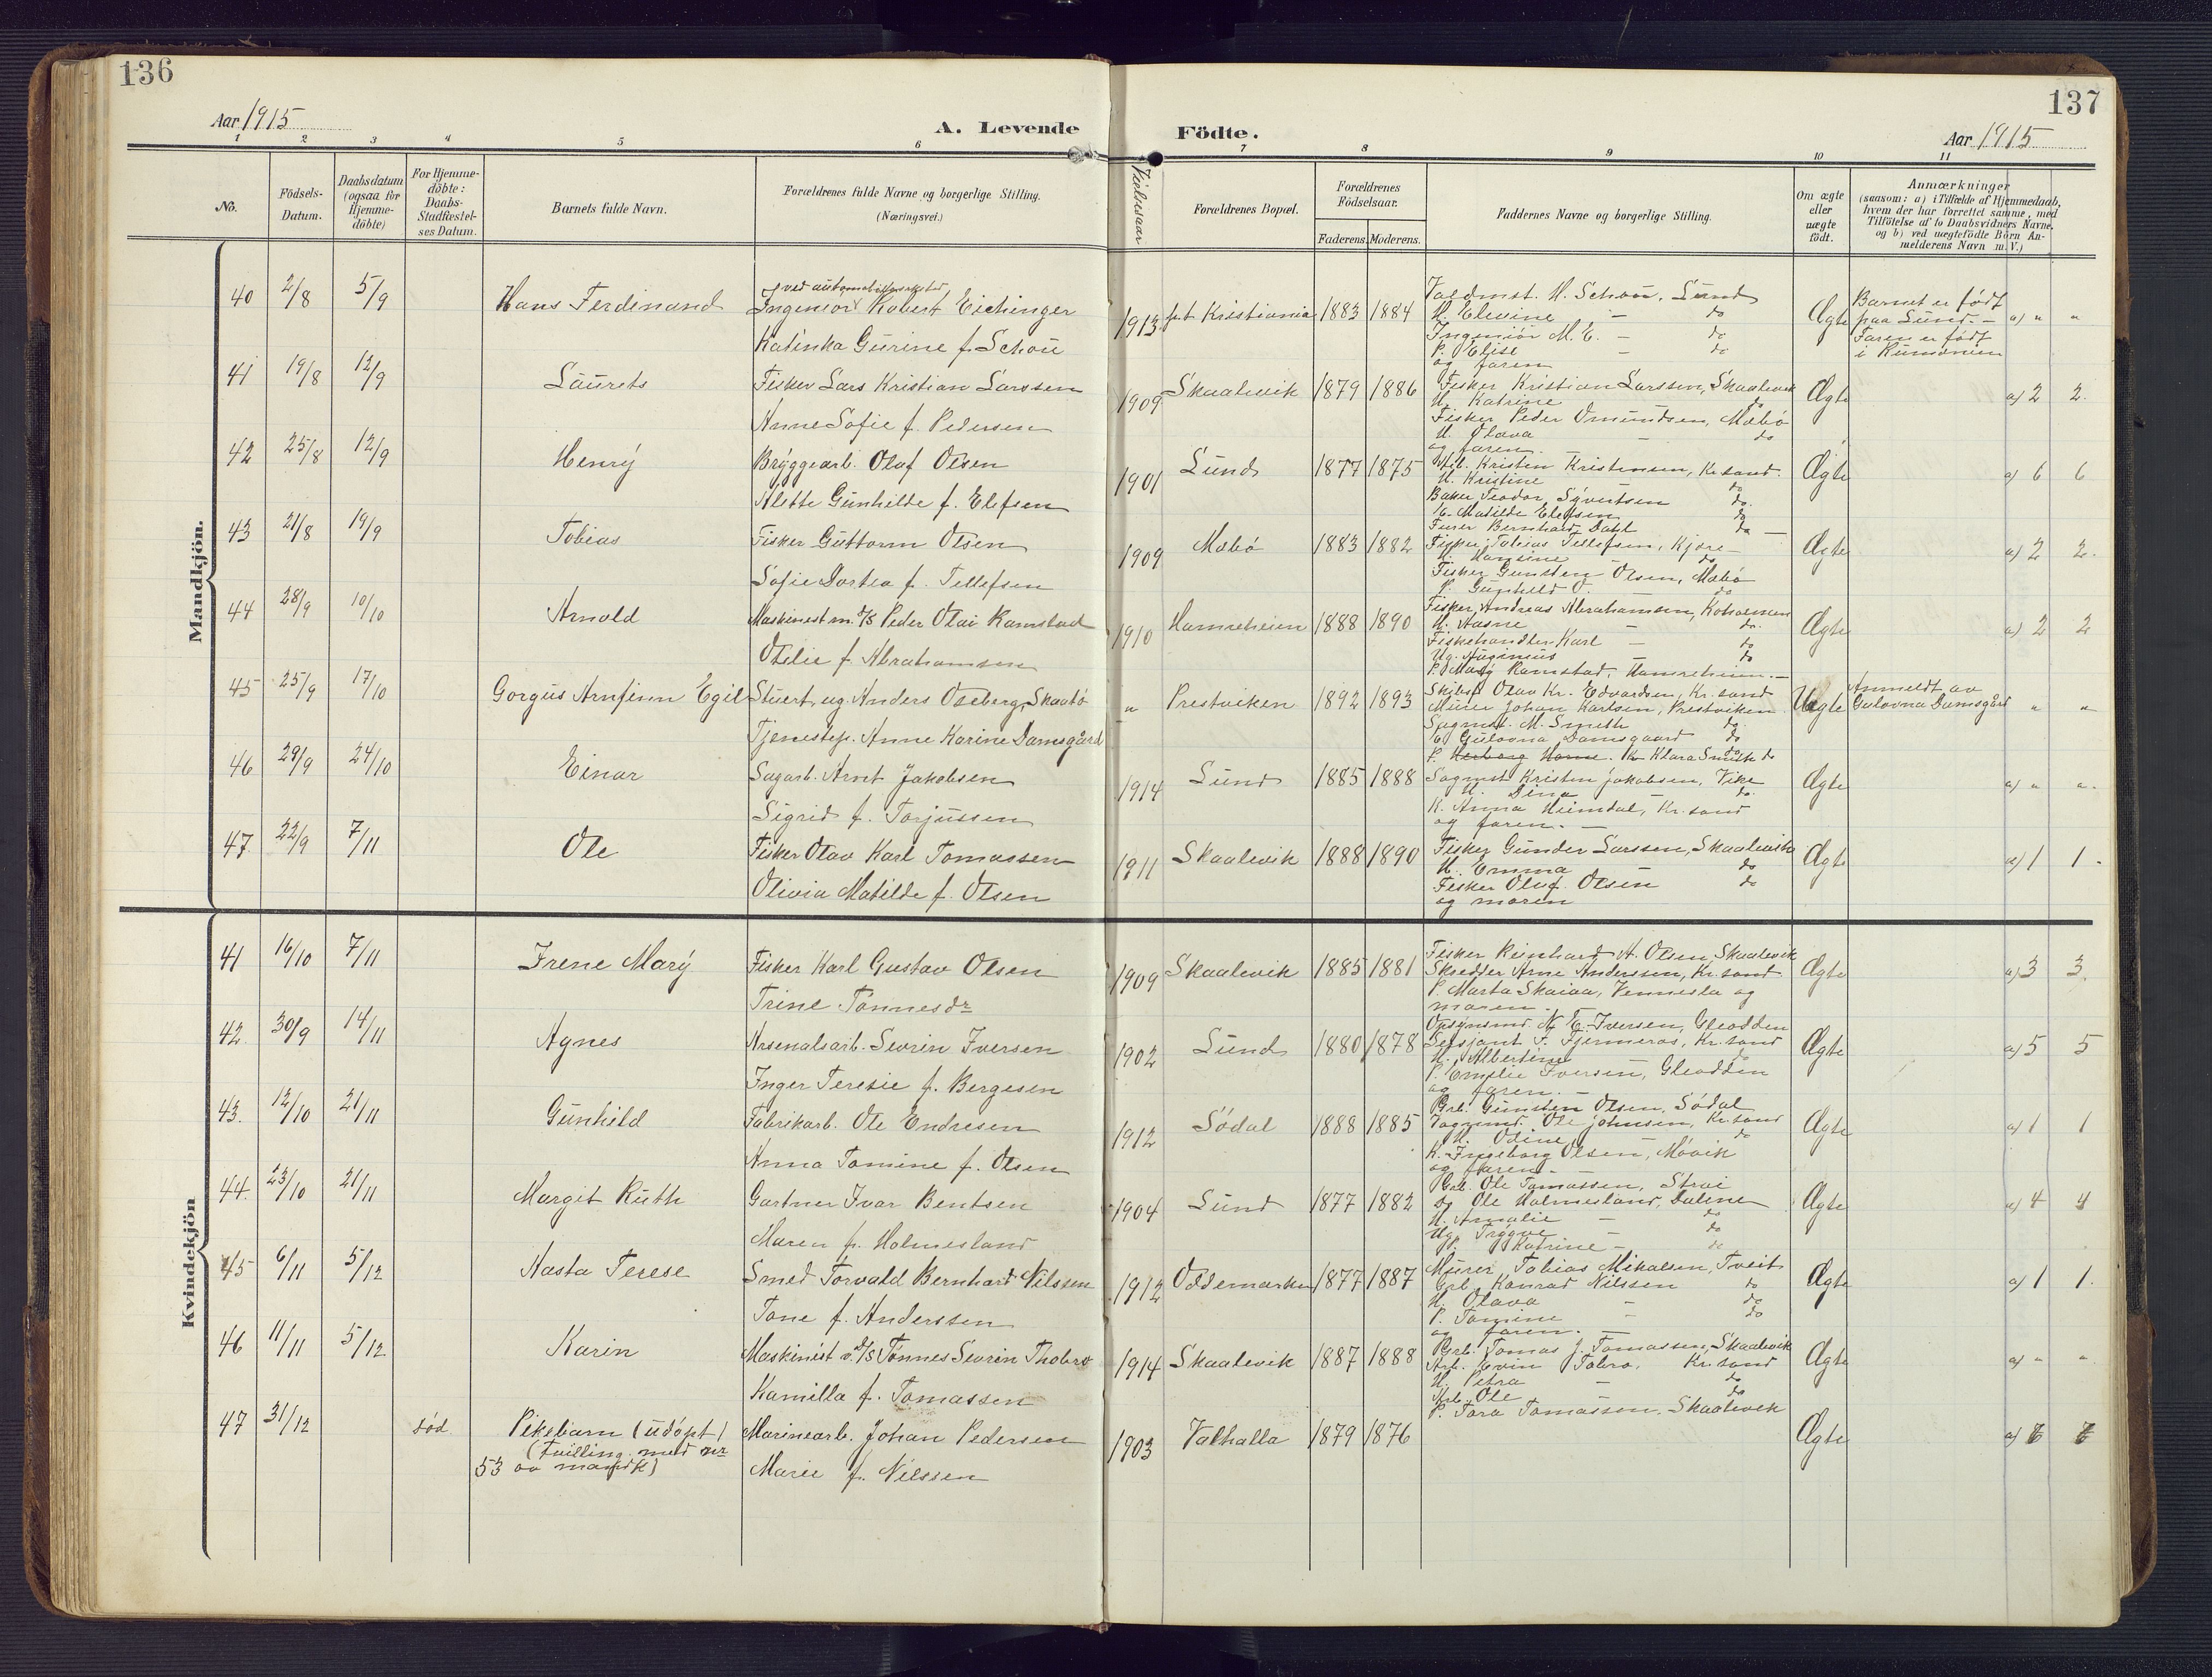 136
Aar 1915
A. Levende
1 2 3 4 5 6
No.
Födsels-Datum.
Daabsdatum (ogsaa for Hjemme-döbte)
For Hjemme-döbte: Daabs-Stadfæstel-ses Datum.
Barnets fulde Navn.
Forældrenes fulde Navne og borgerlige Stilling.
(Næringsvei.)
Mandkjön.
40 2/8 5/9 Hans Ferdinand Ingeniør Robert Eichinger
Katinka Gurine f. Schou
41 19/8 12/9 Laurets Fisker Lars Kristian Larssen
Anne Sofie f. Pedersen
42 25/8 12/9 Henry Bryggearb. Olaf Olsen
Alette Gunhilde f. Elefsen
43 21/8 19/9 Tobias Fisker Guttorm Olsen
Sofie Dortea f. Tellefsen
44 28/9 10/10 Arnold Maskinest m. d/s Peder Olai Ramstad
Otelie f. Abrahamsen
45 25/9 17/10 Gorgus Arnfinn Egil Stuert, ug. Anders Oseberg, Skaatö
Tjenestep. Anne Karine Damsgård
46 29/9 24/10 Einar Sagarb. Arnt Jakobsen
Sigrid f. Torjussen
47. 22/9 7/11 Ole Fisker Olav Karl Tomassen
Olivia Matilde f. Olsen
Kvindekjön
41 16/10 7/11 Irene Mary Fisker Karl Gustav Olsen
Trine Tønnesdr
42. 30/9 14/11 Agnes Arsenalsarb. Sevrin Iversen
Inger Teresie f. Bergesen
43. 12/10 21/11 Gunhild Fabrikarb. Ole Endresen
Anna Tomine f. Olsen
44. 23/10 21/11 Margit Ruth Gartner Ivar Bentsen
Maren f. Holmesland
45 6/11 5/12 Aasta Terese Smed Torvald Bernhard Nilssen
Tone f. Anderssen
46 11/11 5/12 Karin Maskinist v. d/s Tønnes Sevrin Thobro
Kamilla f. Tomassen
47 31/12 död. Pikebarn (udöpt) Marinearb. Johan Pedersen
(Tvilling med nr
53 av mandk) Marie f. Nilssen
137
Födte.
Aar 1915
7 8 9 10 11
Vielsesaar
Forældrenes Bopæl.
Forældrenes Födselsaar.
Faderens. Moderens.
Faddernes Navne og borgerlige Stilling.
Om ægte eller uægte födt.
Anmærkninger
(saasom: a) i Tilfælde af Hjemmedaab,
hvem der har forrettet samme, med
Tilföielse af to Daabsvidners Navne,
og b) ved uægtefödte Börn An-
melderens Navn m. V.)
1913 p.t Kristiania 1883 1884 Valdmst. H. Schou, Lund
H. Elevine - do
Ingeniør M. E. - do
P. Elise - do
og faren
Ægte Barnet er född
paa Lund. -
Faren er född
i Rumænien a) " "
1909 Skaalevik 1879 1886 Fisker Kristian Larssen, Skaalevik
H. Katrine do
Fisker Peder Omundsen, Mæbö
H. Olava - do
og faren. Ægte a) 2 2.
1901 Lund 1877 1875 Arb. Kristen Kristensen, Kr.sand.
H. Kristine do
Baker Teodor Syvertsen do.
E. Matilde Elefsen do
Furer Bernhard Dahl do
Ægte a) 6 6
1909 Mæbö 1883 1882 Fisker Tobias Tellefsen, Kjøre
Fisker Gunsten Olsen, Mæbö
P. Gunhild O. do
Ægte a) 2 2.
1910 Hamreheien 1888 1890 Fisker Andreas Abrahamsen, Koholmen
H. Aasne - do.
Fiskehandler Karl - do
do
P. Mary Ramstad, Hamreheien.
Ægte a) 2 2
" Prestviken 1892 1893 Skibsf Olav Kr. Edvardsen, Kr.sand
Murer Johan Karlsen, Prestviken
Sagmst. M. Smith do.
E Gulovna Damsgaard do
P. Klara Smith do
Uægte Anmeldt av
Gulovna Damsgård " "
1914 Lund 1885 1888 Sagmst Kristen Jakobsen, Vike
H. Dina do.
K. Anna Heimdal, Kr.sand
og faren.
Ægte a) " "
1911 Skaalevik 1888 1890 Fisker Gunder Larssen, Skaalevik
H. Emma do
Fisker Oluf Olsen do
og moren
Ægte a) 1 1.
1909 Skaalevik 1885 1881 Fisker Reinhard A. Olsen, Skaalevik
Skredder Arne Anderssen, Kr.sand
P. Marta Skaiaa, Vennesla og
moren.
Ægte a) 3 3.
1902 Lund 1880 1878 Opsynsmd N. E. Iversen, Gleodden
Sersjant T. Fjermeros, Kr.sand
H. Albertine do
P. Emelie Iversen, Gleodden
og faren.
Ægte a) 5 5
1912 Södal 1888 1885 Grb. Gunsten Olsen, Södal
Ole Johnsen, Kr.sand
H. Odine do
K. Ingeborg Olsen, Møvik
og faren.
Ægte a) 1 1
1904 Lund 1877 1882 Grb. Ole Tomassen, Strai
do Ole Holmesland, Dalene
H. Amalie - do
Ug. Trygve do
P. Katrine - do
Ægte a) 4 4
1912 Oddemarken 1877 1887 Murer Tobias Mikalsen, Tveit
Grb. Konrad Nilssen do
H. Olava - do
P. Tomine - do
og faren.
Ægte a) 1 1.
1914 Skaalevik 1887 1888 Grb. Tomas J. Tomassen, Skaalevik
Arb. Evin Tobro. Kr.sand
H. Petra - do
Arb. Ole - do
P. Tora Tomassen, Skaalevik
Ægte a) " "
1903 Valhalla 1879 1876 Ægte a)